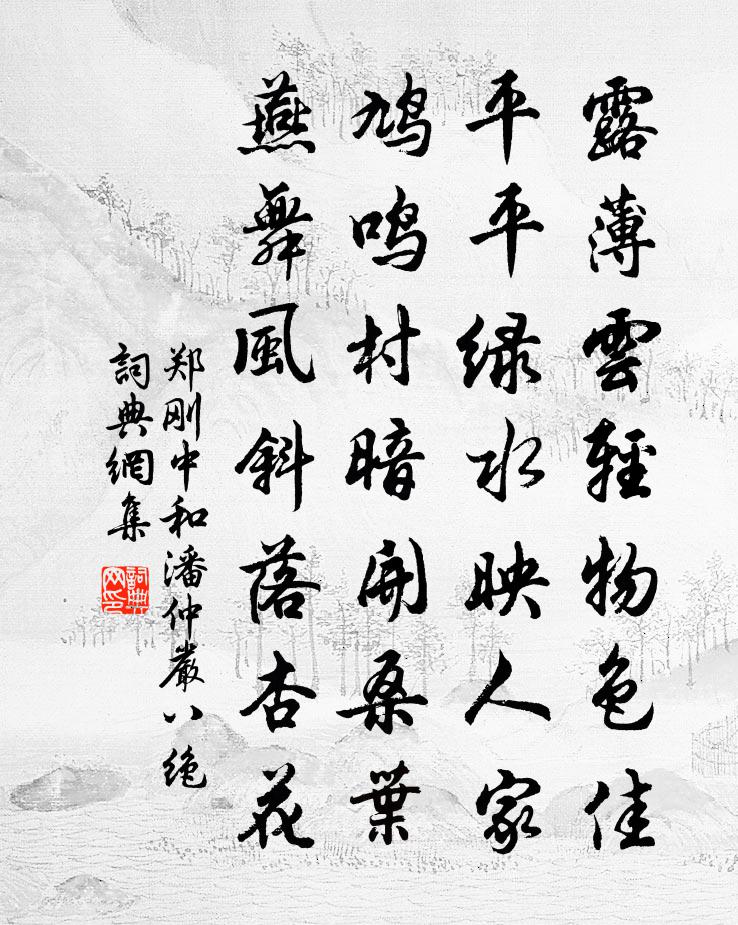 露薄雲輕物色佳
平平緑水映人家
鳩鳴村暗開桑葉
燕舞風斜落杏花
郑刚中和潘仲嚴八绝
詞典網集
詞典網印